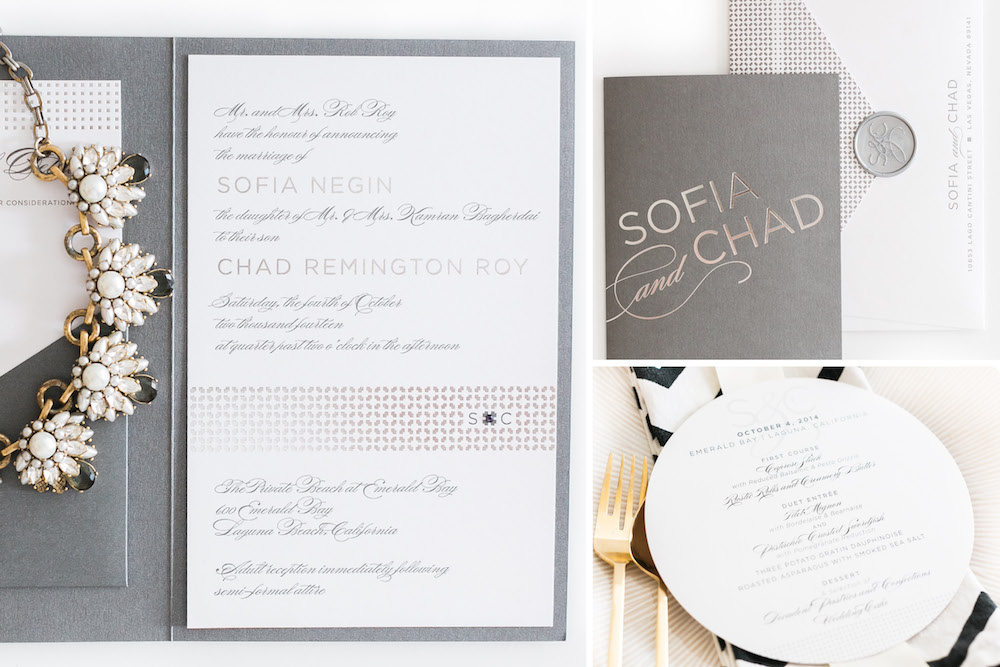 R CONSIDERATION
Mr. and Mrs. Rob Roy
have the honour of announcing
the marriage of
SOFIA NEGIN
the daughter of Mr. & Mrs. Kamran Bagherdai
to their son
CHAD REMINGTON ROY
Saturday, the fourth of October
two thousand fourteen
at quarter past two o'clock in the afternoon
S C
The Private Beach at Emerald Bay
600 Emerald Bay
Laguna Beach, California
Adult reception immediately following
semi-formal attire
SOFIA
and CHAD
SOFIA and CHAD
10653 LAGO CANTINI STREET LAS VEGAS, NEVADA 89141
OCTOBER 4, 2014
EMERALD BAY | LAGUNA, CALIFORNIA
FIRST COURSE
Caprese Stack
with Reduced Balsamic & Pesto Drizzle
DUET ENTRÉE
Filet Mignon
with Bordelaise & Bearnaise
AND
with Pomegranate Reduction
THREE POTATO GRATIN DAUPHINOISE
ROASTED ASPARAGUS WITH SMOKED SEA SALT
DESSERT
a selection of
Decadent Pastries and Confections
Wedding Cake